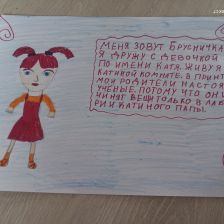 МЕНЯ ЗОВУТ БРУСНИЧКА
Я ДРУЖУ С ДЕВОЧКОЙ
ПО ИМЕНИ КАТЯ. ЖИВУ Я
КАТИНОЙ КОМНАТЕ. В ПРИНТ
МОИ РОДИТЕЛИ НАСТОЯ
УЧЕНЫЕ. ПОТОМУ ЧТО ОНИ
ЧИНЯТ ВЕЩИ ТОЛЬКО В ЛАБ
РИИ КАТИНОГО ПАПЫ.